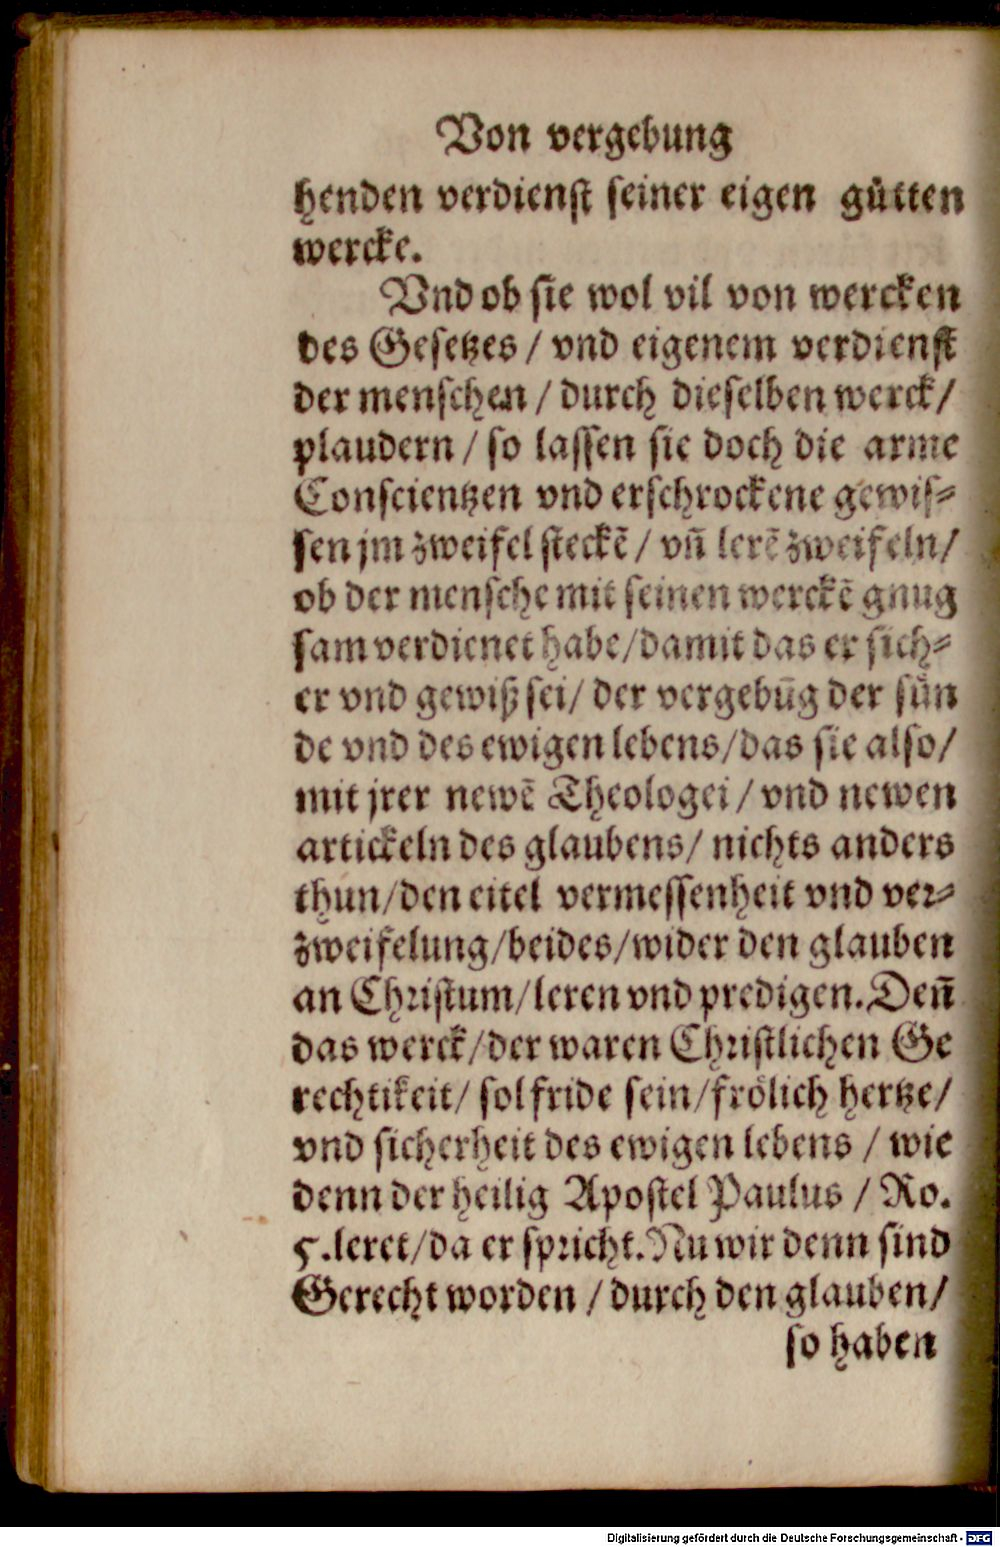 Von vergebung
henden verdienst seiner eigen gůtten
wercke.
Vnd ob sie wol vil von wercken
des Gesetzes / vnd eigenem verdienst
der menschen / durch dieselben werck /
plaudern / so lassen sie doch die arme
Conscientzen vnd erschrockene gewis⸗
sen jm zweifel steckē / vn̄ lerē zweifeln /
ob der mensche mit seinen werckē gnug
sam verdienet habe / damit das er sich⸗
er vnd gewiß sei / der vergebūg der sün
de vnd des ewigen lebens / das sie also /
mit jrer newē Theologei / vnd newen
artickeln des glaubens / nichts anders
thun / den eitel vermessenheit vnd ver⸗
zweifelung / beides / wider den glauben
an Christum / leren vnd predigen. Den̄
das werck / der waren Christlichen Ge
rechtikeit / sol fride sein / frölich hertze /
vnd sicherheit des ewigen lebens / wie
denn der heilig Apostel Paulus / Ro.
5. leret / da er spricht. Nu wir denn sind
Gerecht worden / durch den glauben /
so haben
Digitalisierung gefördert durch die Deutsche Forschungsgemeinschaft - DFG